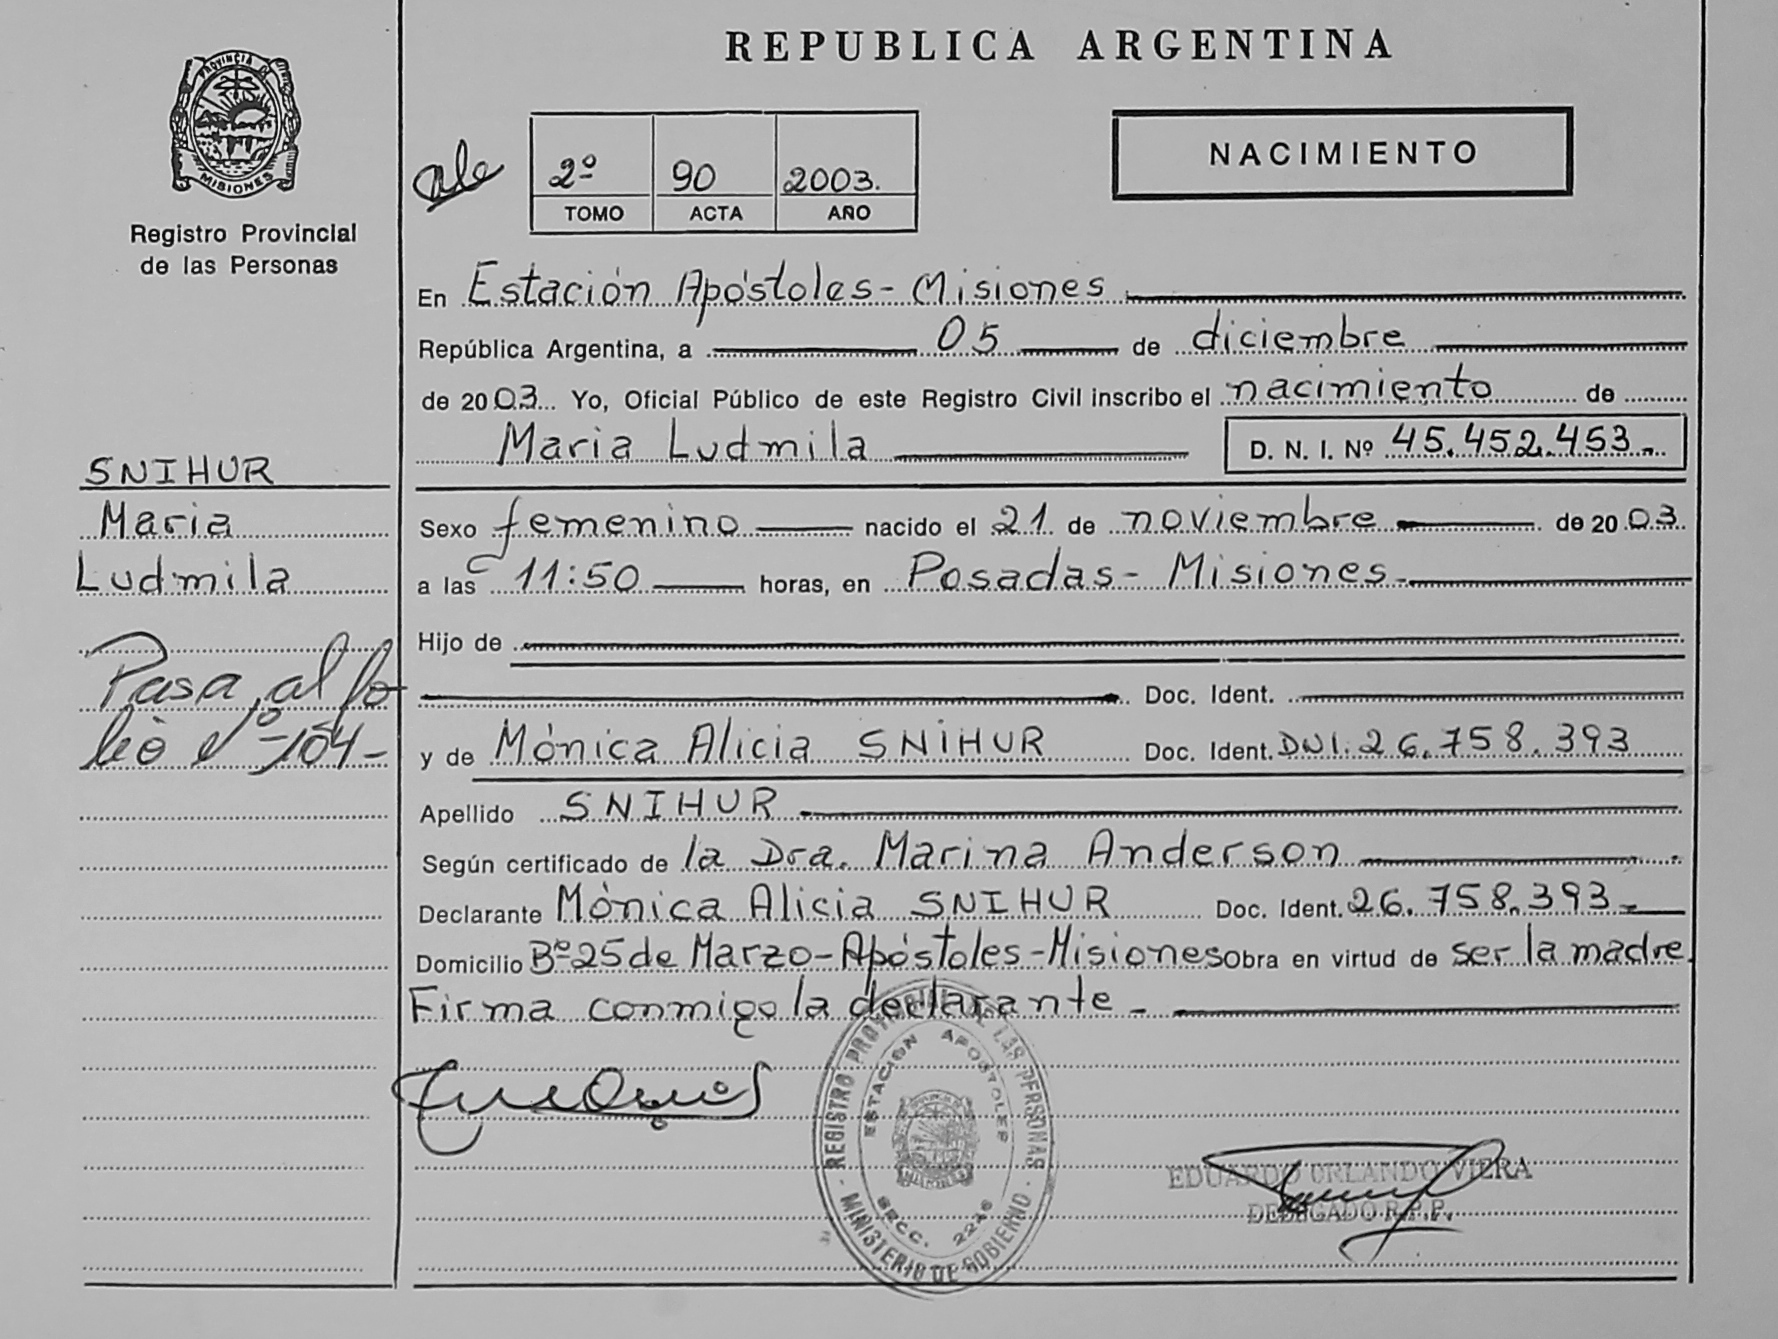 REPUBLICA ARGENTINA
PROVINCIA DE
MISIONES
Registro Provincial
de las Personas
2º 90 2003.
TOMO ACTA AÑO
NACIMIENTO
En Estación Apóstoles - Misiones
República Argentina, a 05 de diciembre
de 2003 Yo, Oficial Público de este Registro Civil inscribo el nacimiento de
Maria Ludmila D. N. I. Nº 45.452.453.-
SNIHUR
Maria
Ludmila
Sexo femenino nacido el 21 de noviembre de 2003
a las 11:50 horas, en Posadas - Misiones
Hijo de
Doc. Ident.
Pasa al fo
lio Nº 104-
y de Mónica Alicia SNIHUR Doc. Ident. DNI. 26.758.393
Apellido SNIHUR
Según certificado de la Dra. Marina Anderson
Declarante Mónica Alicia SNIHUR Doc. Ident. 26.758.393.-
Domicilio Bº 25 de Marzo - Apóstoles - Misiones Obra en virtud de ser la madre.
Firma conmigo la declarante -
REGISTRO PROVINCIAL DE LAS PERSONAS
ESTACION APOSTOLES
SECC. 2246
MINISTERIO DE GOBIERNO
EDUARDO ORLANDO VIERA
DELEGADO R.P.P.